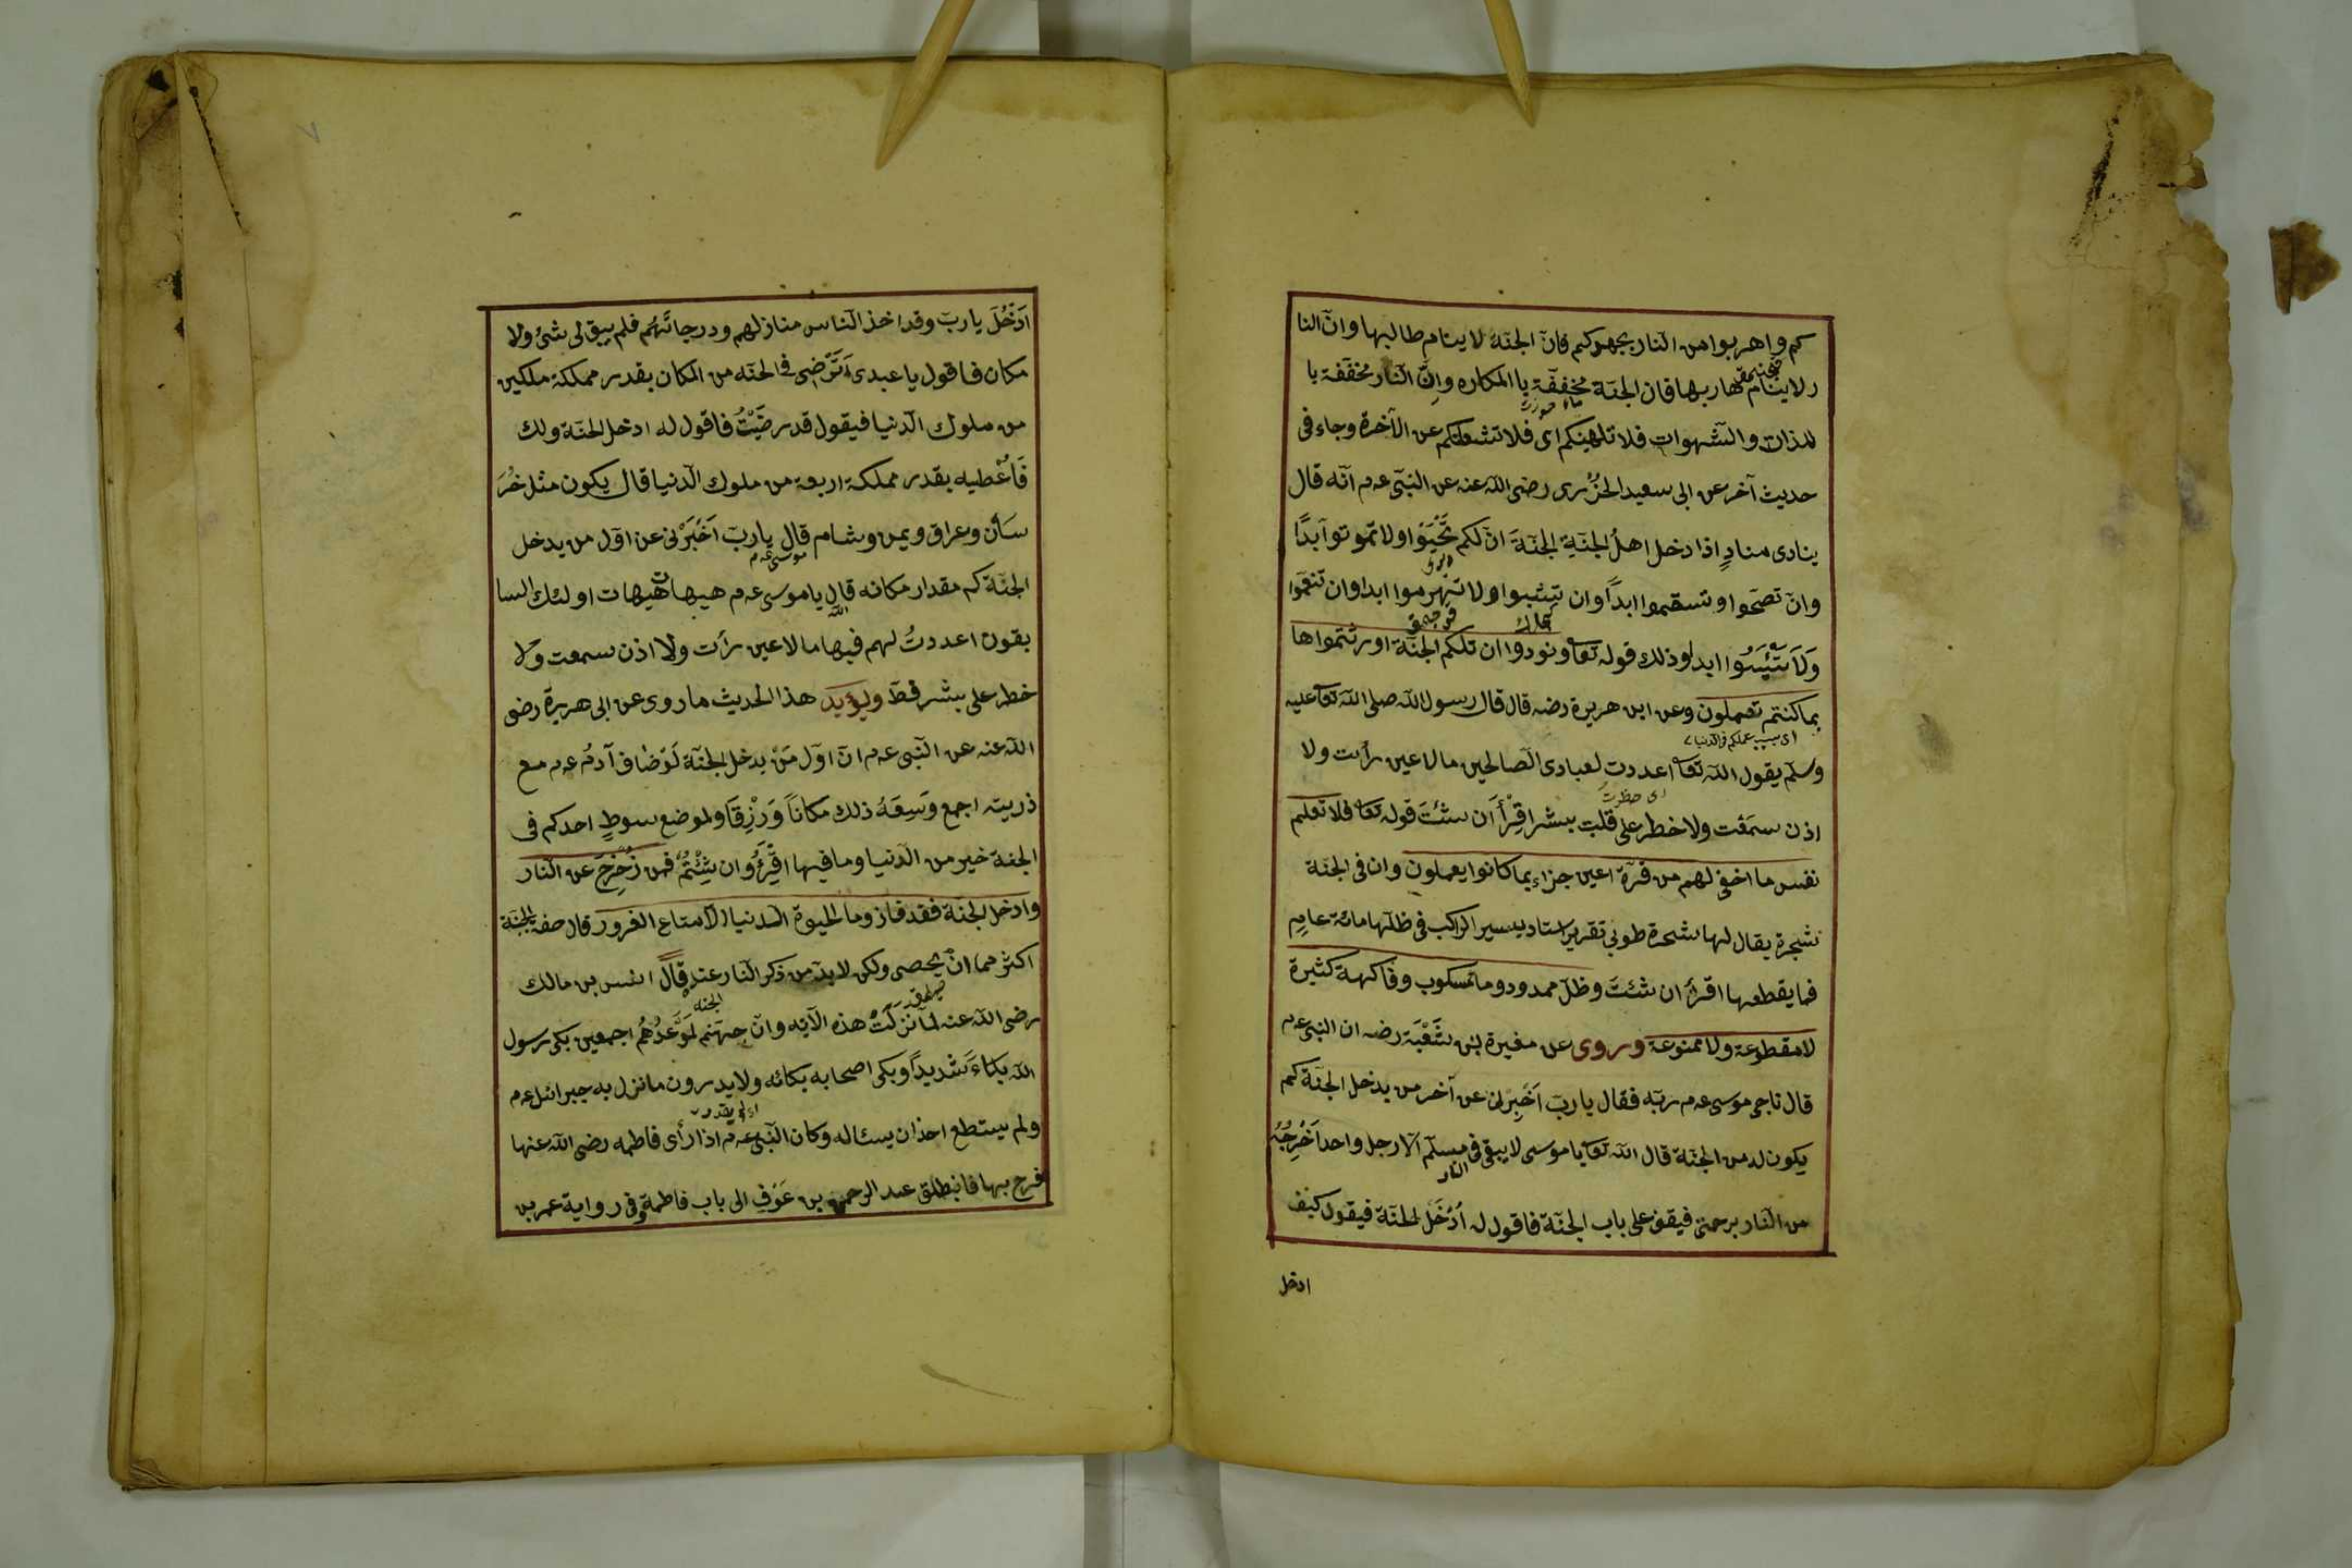 كم واهربوا من النار بجهدكم فانّ الجنّة لا ينام طالبها وانّ النا
ر لا ينام هاربها فان الجنّة مخففّة با المكاره وانّ النار مخففة با
للذات والشهوات فلا تلهينكم اى فلا تشغلنكم عن الآخرة وجاء فى
حديث آخر عن ابى سعيد الخُزرى رضى اللّه عنه عن النبّى عم انّه قال
ينادى منادٍ اذا دخل اهلُ الجنّةِ الجنّةَ انّ لكم تَحْيَوْا ولا تموتوا آبدًا
وانّ تصحّوا وتسقموا ابداً وان تشبوا ولا تهرموا ابدا وان تنعّموا
وَلَا تَيْئَسُوا ابدا وذلك قوله تعا ونودوا ان تلكم الجنّة اورثتموها
بما كنتم تعملون وعن ابى هريرة رضه قال قال رسول اللّه صلى اللّه تعا عليه
اى بسبب عملكم فى الدنيا
وسلّم يقول اللّه تعا اعددت لعبادى الصالحين ما لا عين رأت ولا
اى حظرت
اذن سمعَت ولا خطر على قلب بشر اقِرْأَ ان شئتَ قوله تعا فلا تعلم
نفس ما اخفى لهم من قرّة اعين جزاء بما كانوا يعملون وان فى الجنّة
شجرة يقال لها شجرة طوبى تقرير استاد يسير الراكب فى ظلّها مائة عامٍ
فما يقطعها اقرأ ان شئتَ وظلّ ممدود وما مسكوب وفاكهة كثيرة
لا مقطوعة ولا ممنوعة وروى عن مغيرة بنى شَعْبَة رضه ان النبى عم
قال ناجى موسى عم ربّه فقال يا ربّ اَخْبِرْنى عن آخر من يدخل الجنّة كم
يكون له من الجنّة قال اللّه تعا يا موسى لا يبقى فى مسلّم الّا رجل واحد اَخْرِجُهُ
النار
من النار برحمتى فيقف على باب الجنّة فاقول له اُدْخُل الجنّة فيقول كيف
ادخل
اَدْخُلَ يا ربّ وقد اخذ الناس منازلهم ودرجاتَهُم فلم يبق لى شئ ولا
مكان فاقول يا عبدى اَتَرْضى فى الجنّه من المكان بقدر مملكة ملكين
من ملوك الدنيا فيقول قد رضَيْتُ فاقول له ادخل الجنّة ولك
فَاُعْطيه بقدر مملكة اربعة من ملوك الدنيا قال يكون مثل خُرَ
سَان وعراق ويمن وشام قال يا ربّ اَخْبَرْنى عن اوّل من يدخل
موسى عم
الجنّة كم مقدار مكانه قال يا موسى عم هيهات هيهات اولئك السا
اللّه
بقون اعددتُ لهم فيها ما لا عين رأت ولا اذن سمعت ولا
خطر على بشر قطّ ويؤيد هذا الحديث ما روى عن ابى هريرة رضى
اللّه عنه عن النبى عم انّ اوّل مَنْ يدخل الجنّة لَوْ ضاف آدم عم مع
ذريته اجمع وَسِعَهُ ذلك مكاناً وَرْزِقَا ولموضع سوطٍ احدكم فى
الجنة خير من الدنيا وما فيها اقِرْؤُ وان شِئْتُمْ فمن زُحْزِحَ عن النار
وادخل الجنّة فقد فاز وما الحيوة الدنيا الّا متاع الغرور قال صفة الجنّة
اكثر مما انْ يحصى ولكن لا بدّ من ذكر النار عند قال انس بن مالك
الجنه
رضى اللّه عنه لمّا نَزَلَتْ هذه الآيه وانّ جهنّم لَمَوْعدُهُم اجمعين بكى رسول
اللّه بكاءَ شديداً وبكى اصحابه بكائه ولا يدرون ما نزل به جبرائل عم
اى لم يقدر
ولم يستطع احذ ان يسئاله وكان النبّى عم اذا رأى فاطمه رضى اللّه عنها
فرح بها فانطلق عبد الرحمن بن عَوْفٍ الى باب فاطمة وفى رواية عمر بن